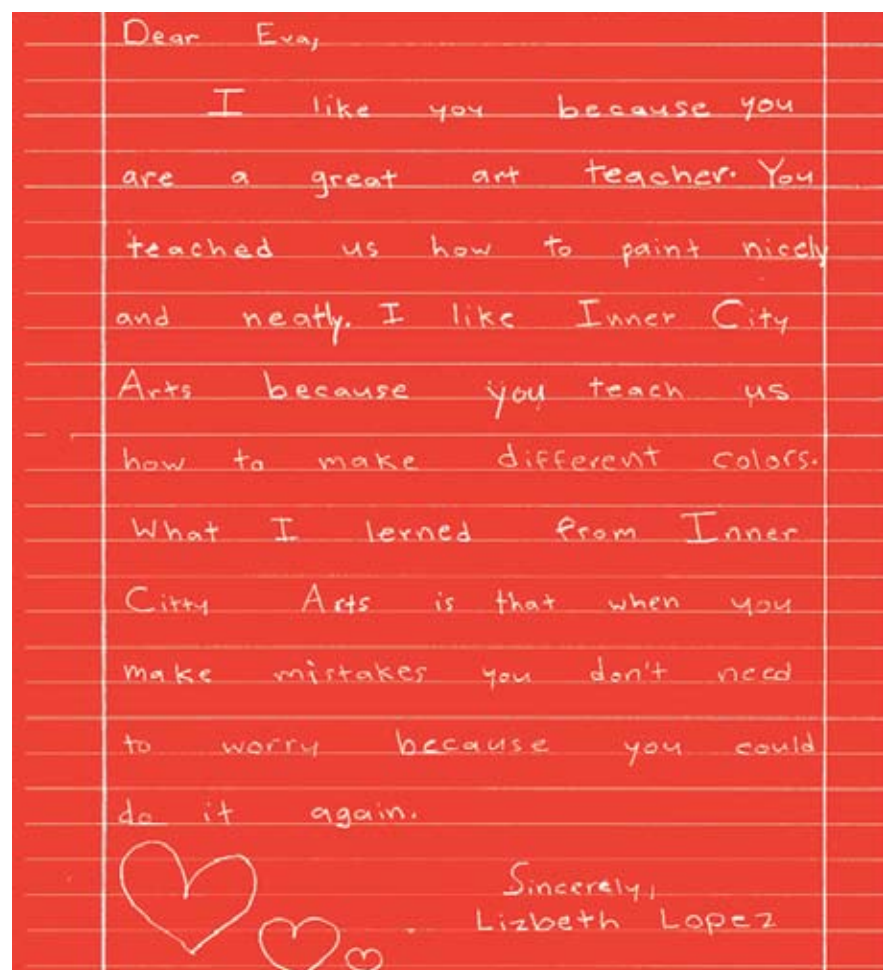 Dear Eva,
I like you because you
are a great art teacher. You
teached us how to paint nicely
and neatly. I like Inner City
Arts because you teach us
how to make different colors.
What I lerned from Inner
Citty Arts is that when you
make mistakes you don't need
to worry because you could
do it again.
Sincerely,
Lizbeth Lopez